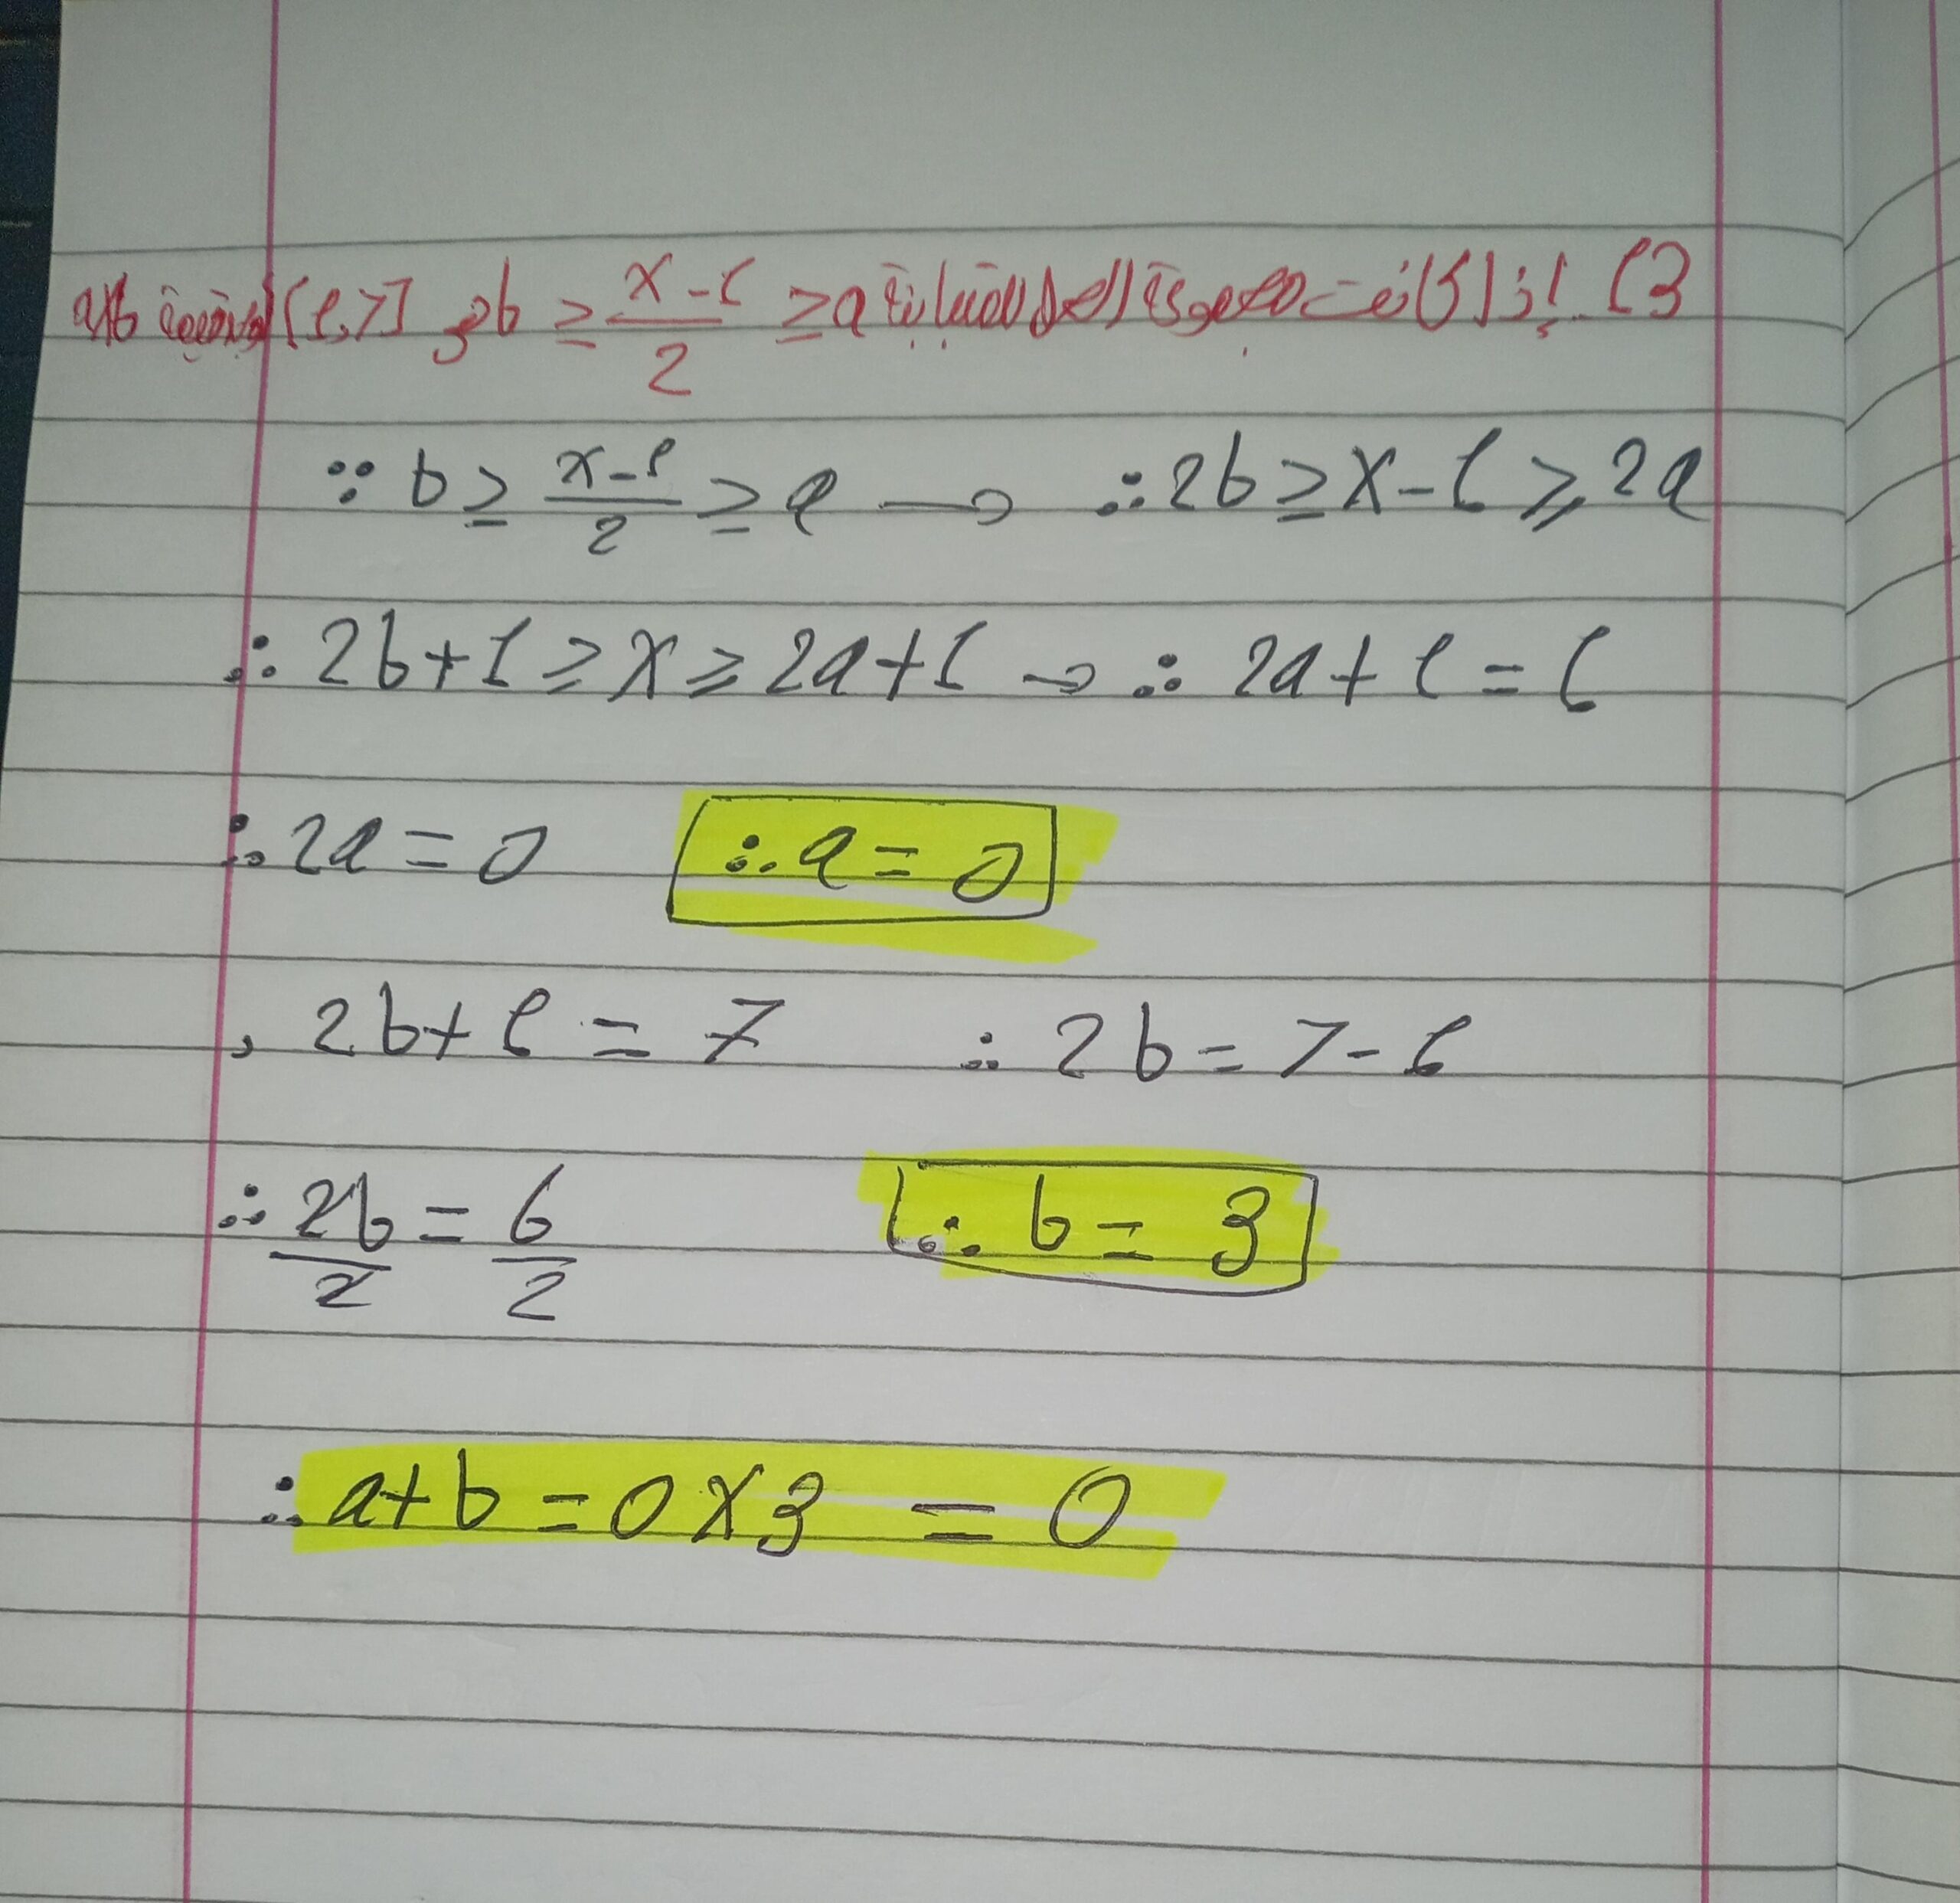 3) إذا كانت مجموعة الحل للمتباينة a ≤ (x-1)/2 ≤ b هي [1,7] فإن قيمة a×b
∵ b ≥ (x-1)/2 ≥ a → ∴ 2b ≥ x-1 ≥ 2a
∴ 2b+1 ≥ x ≥ 2a+1 → ∴ 2a+1=1
∴ 2a=0 ∴ a=0
, 2b+1=7 ∴ 2b=7-1
∴ 2b/2 = 6/2 ∴ b=3
∴ a+b=0×3=0